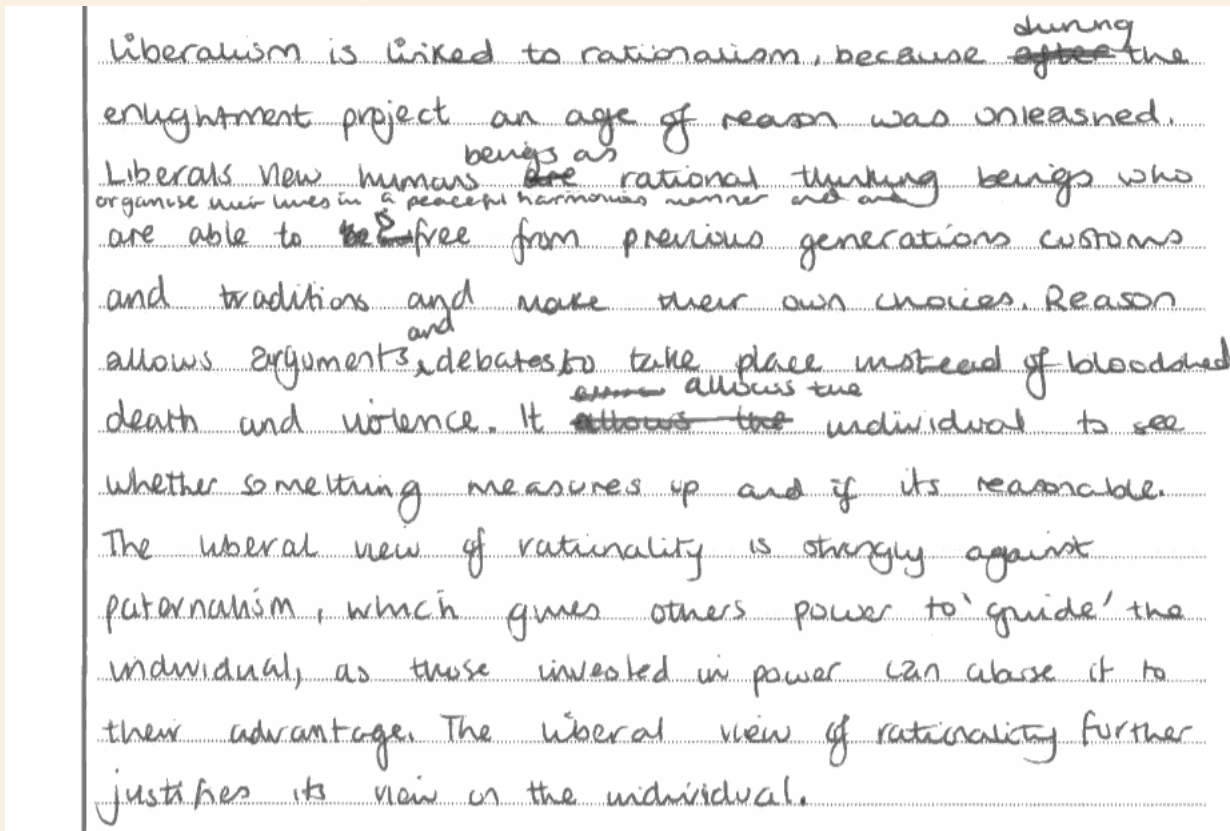 during
Liberalism is linked to rationalism, because after the
enlightment project an age of reason was unleashed.
beings as
Liberals view humans are rational thinking beings who
organise their lives in a peaceful harmonies manner and are
are able to be free from previous generations customs
and traditions and make their own choices. Reason
and
allows arguments, debates to take place instead of bloodshed
allows the
death and violence. It allows the individual to see
whether something measures up and if its reasonable.
The liberal view of rationality is strongly against
paternalism, which gives others power to 'guide' the
individual, as those invested in power can abuse it to
their advantage. The liberal view of rationality further
justifies its view on the individual.